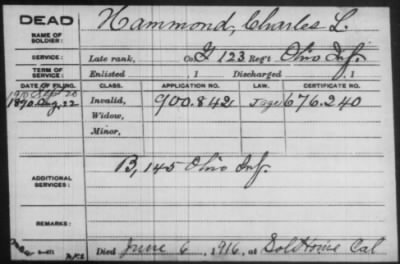 DEAD
NAME OF SOLDIER: Hammond, Charles L.
SERVICE: Late rank, Co. G 123 Reg't Ohio Inf.
TERM OF SERVICE: Enlisted , 1 Discharged , 1
DATE OF FILING. CLASS. APPLICATION NO. LAW. CERTIFICATE NO.
1890 Aug. 22 Invalid, 900.842 676.240
Widow,
Minor,
ADDITIONAL SERVICES: B, 145 Ohio Inf.
REMARKS:
Died June 6, 1916, at Sol Home Cal